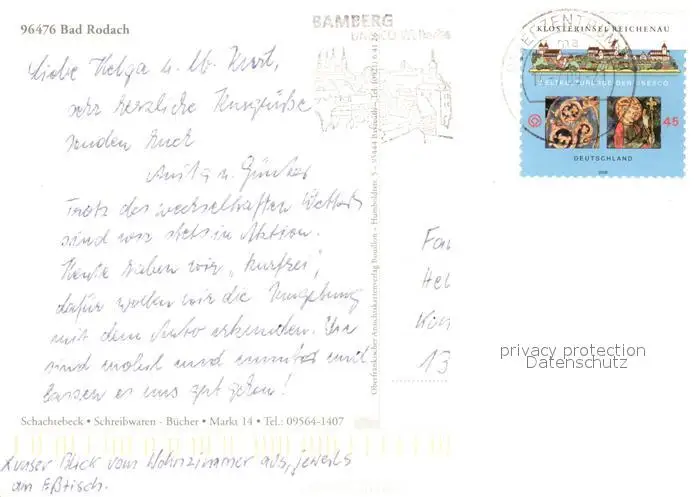 96476 Bad Rodach
Liebe Helga u. lb. Kurt,
sehr herzliche Kurgrüße
senden Euch
Anita u. Günter
Trotz des wechselhaften Wetters
sind wir stets in Aktion.
Heute haben wir "kurfrei",
dafür wollen wir die Umgebung
mit dem Auto erkunden. Wir
sind wohl und munter und
lassen es uns gut gehen!
Schachtebeck • Schreibwaren - Bücher • Markt 14 • Tel.: 09564-1407
unser Blick vom Wohnzimmer aus, jeweils
am Eßtisch.
Oberfränkischer Ansichtskartenverlag Bouillon - Humboldtstr. 5 - 95444 Bayreuth - Tel. (0921) 6 41 26
BAMBERG
UNESCO-Welterbe
BRIEFZENTRUM
KLOSTERINSEL REICHENAU
WELTKULTURERBE DER UNESCO
45
DEUTSCHLAND
2008
Fam
Hel
Kön
13
privacy protection
Datenschutz